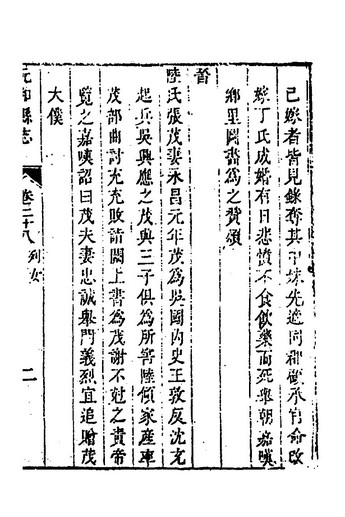 已嫁者皆見錄奪其中妹先適同郡顧承官命改
嫁丁氏成婚有日悲憤不食飲藥而死舉朝嘉嘆
鄉里圖畫為之贊頌
晉
陸氏張茂妻永昌元年茂為吳國內史王敦反沈充
起兵吳興應之茂與三子俱為所害陸傾家產率
茂部曲討充充敗詣闕上書為茂謝不尅之責帝
覽之嘉嘆詔曰茂夫妻忠誠舉門義烈宜追贈茂
太僕
元和縣志
卷二十八
列女
二